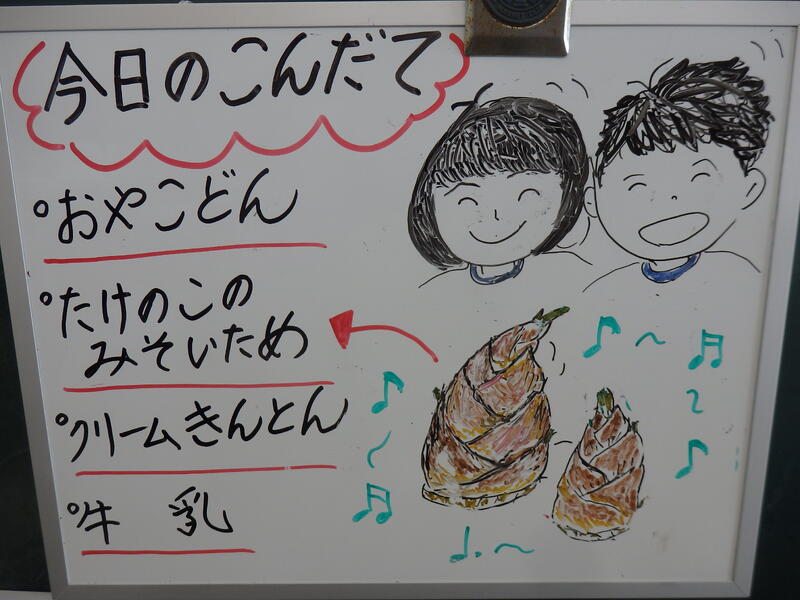 今日のこんだて
おやこどん
たけのこの
みそいため
クリームきんとん
牛 乳